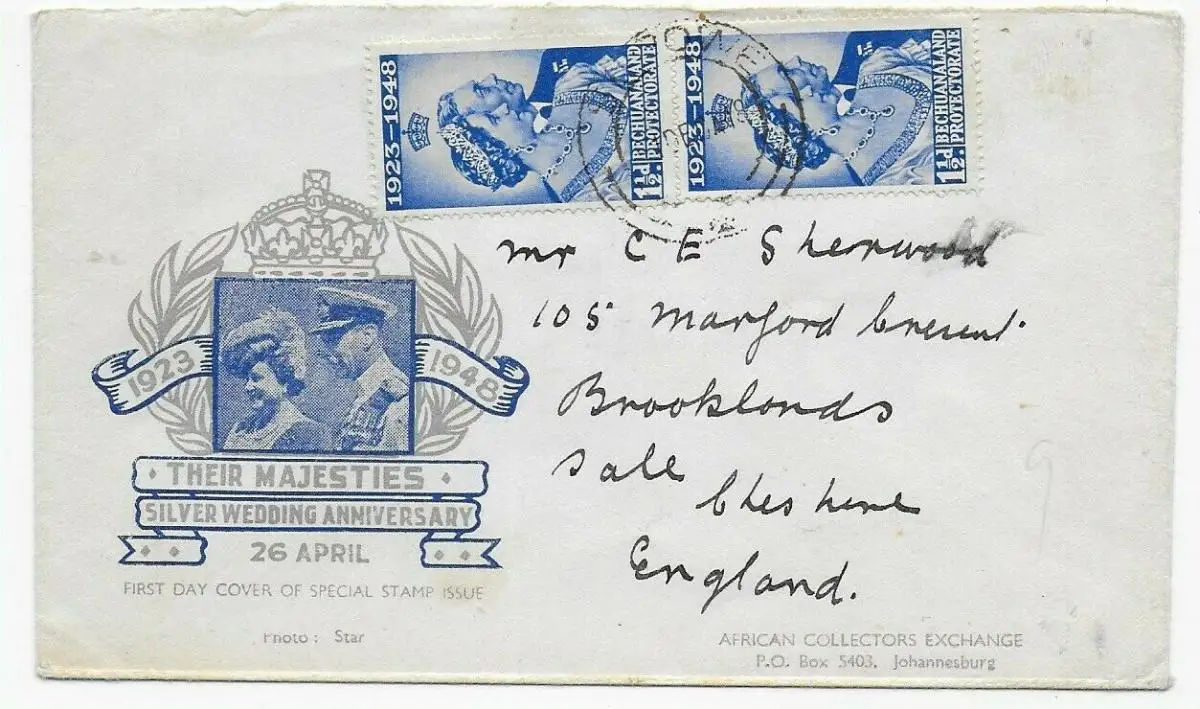 1923–1948
1½d.
BECHUANALAND
PROTECTORATE
1923–1948
1½d.
BECHUANALAND
PROTECTORATE
DE
48
Mr C E Sherwood
105 Marford Crescent.
Brooklands
Sale
Cheshire
England.
1923
1948
THEIR MAJESTIES
SILVER WEDDING ANNIVERSARY
26 APRIL
FIRST DAY COVER OF SPECIAL STAMP ISSUE
Photo: Star
AFRICAN COLLECTORS EXCHANGE
P.O. Box 5403, Johannesburg